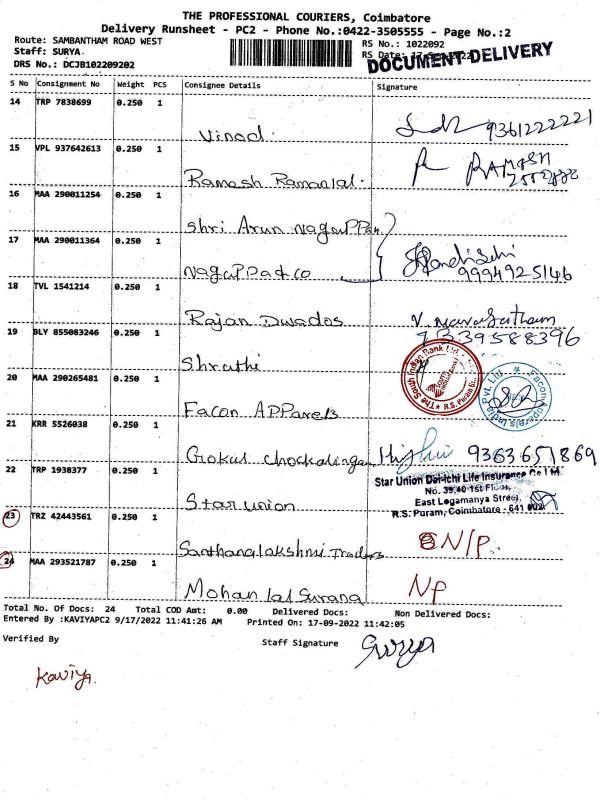 THE PROFESSIONAL COURIERS, Coimbatore
Delivery Runsheet - PC2 - Phone No.:0422-3505555 - Page No.:2
Route: SAMBANTHAM ROAD WEST
RS No.: 1022092
Staff: SURYA.
RS Date:
DOCUMENT DELIVERY
DRS No.: DCJB102209202
S No Consignment No Weight PCS Consignee Details Signature
14 TRP 7838699 0.250 1
Vinod. 9361222221
15 VPL 937642613 0.250 1
Ramesh Ramanlal. RAMESH
16 MAA 290011254 0.250 1
Shri Arun Nagappan
17 MAA 290011364 0.250 1
Nagappa & co 9994925146
18 TVL 1541214 0.250 1
Rajan Dwados
19 BLY 855083246 0.250 1
7339588396
Shrathi
The South Indian Bank Ltd. R.S. Puram
20 MAA 290265481 0.250 1
Facon Apparels
21 KRR 5526038 0.250 1
Gokul Chockalingam 9363651869
22 TRP 1938377 0.250 1
Star Union Dai-ichi Life Insurance Co Ltd
No. 39,40 1st Floor,
East Logamanya Street,
R.S. Puram, Coimbatore - 641 002
Star union
23 TRZ 42443561 0.250 1
Santhanalakshmi Traders N/P.
24 MAA 293521787 0.250 1
Mohan lal Surana NP
Total No. Of Docs: 24 Total COD Amt: 0.00 Delivered Docs: Non Delivered Docs:
Entered By :KAVIYAPC2 9/17/2022 11:41:26 AM Printed On: 17-09-2022 11:42:05
Verified By Staff Signature Surya
Kaviya.